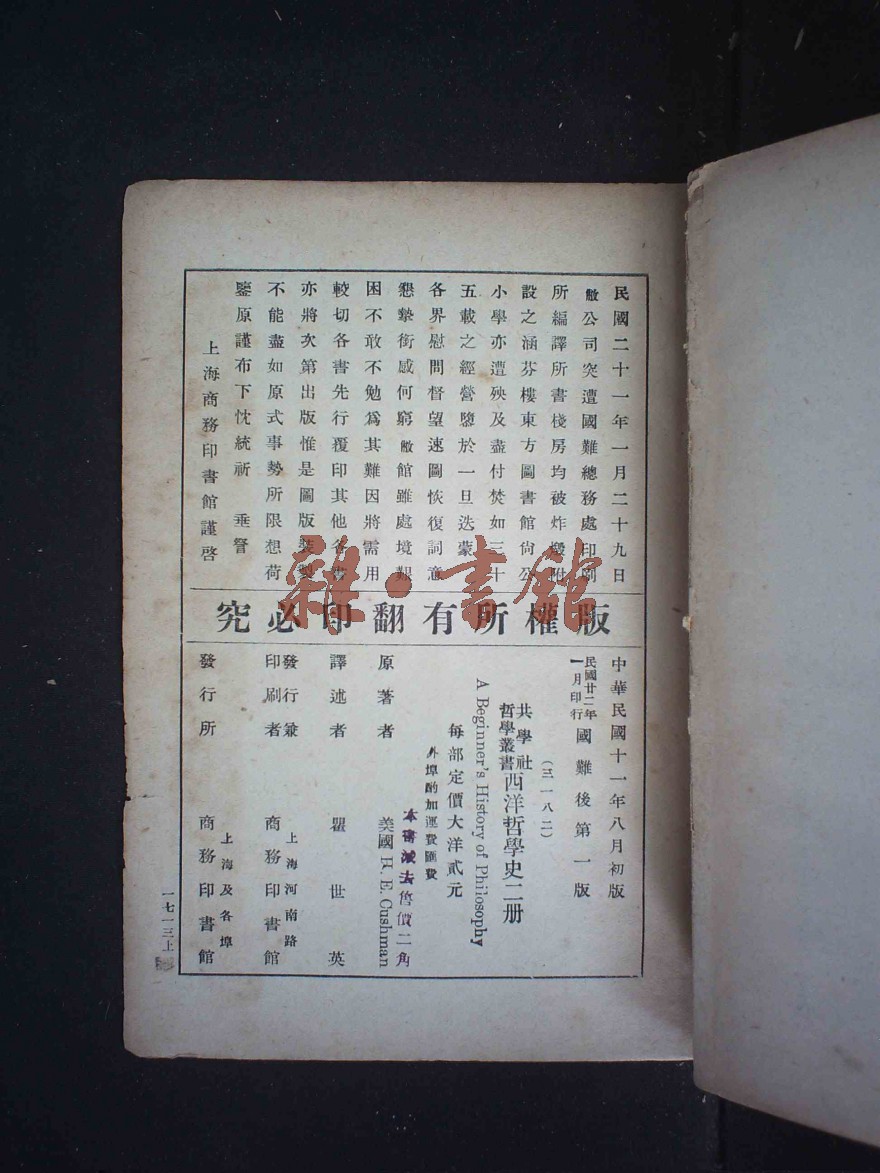 民國二十一年一月二十九日
敝公司突遭國難總務處印刷
所編譯所書棧房均被炸燬附
設之涵芬樓東方圖書館尚公
小學亦遭殃及盡付焚如三十
五載之經營隳於一旦迭蒙
各界慰問督望速圖恢復詞意
懇摯銜感何窮敝館雖處境艱
困不敢不勉爲其難因將需用
較切各書先行覆印其他各書
亦將次第出版惟是圖版裝製
不能盡如原式事勢所限想荷
鑒原謹布下忱統祈 垂詧
上海商務印書館謹啓
版權所有翻印必究
中華民國十一年八月初版
民國廿二年一月印行 國難後第一版
(三一八二)
共學社哲學叢書 西洋哲學史二册
A Beginner's History of Philosophy
每部定價大洋貳元
外埠酌加運費匯費
本書減去售價二角
原著者 美國 H. E. Cushman
譯述者 瞿世英
發行兼印刷者 上海河南路 商務印書館
發行所 上海及各埠 商務印書館
一七一三上
雜·書館